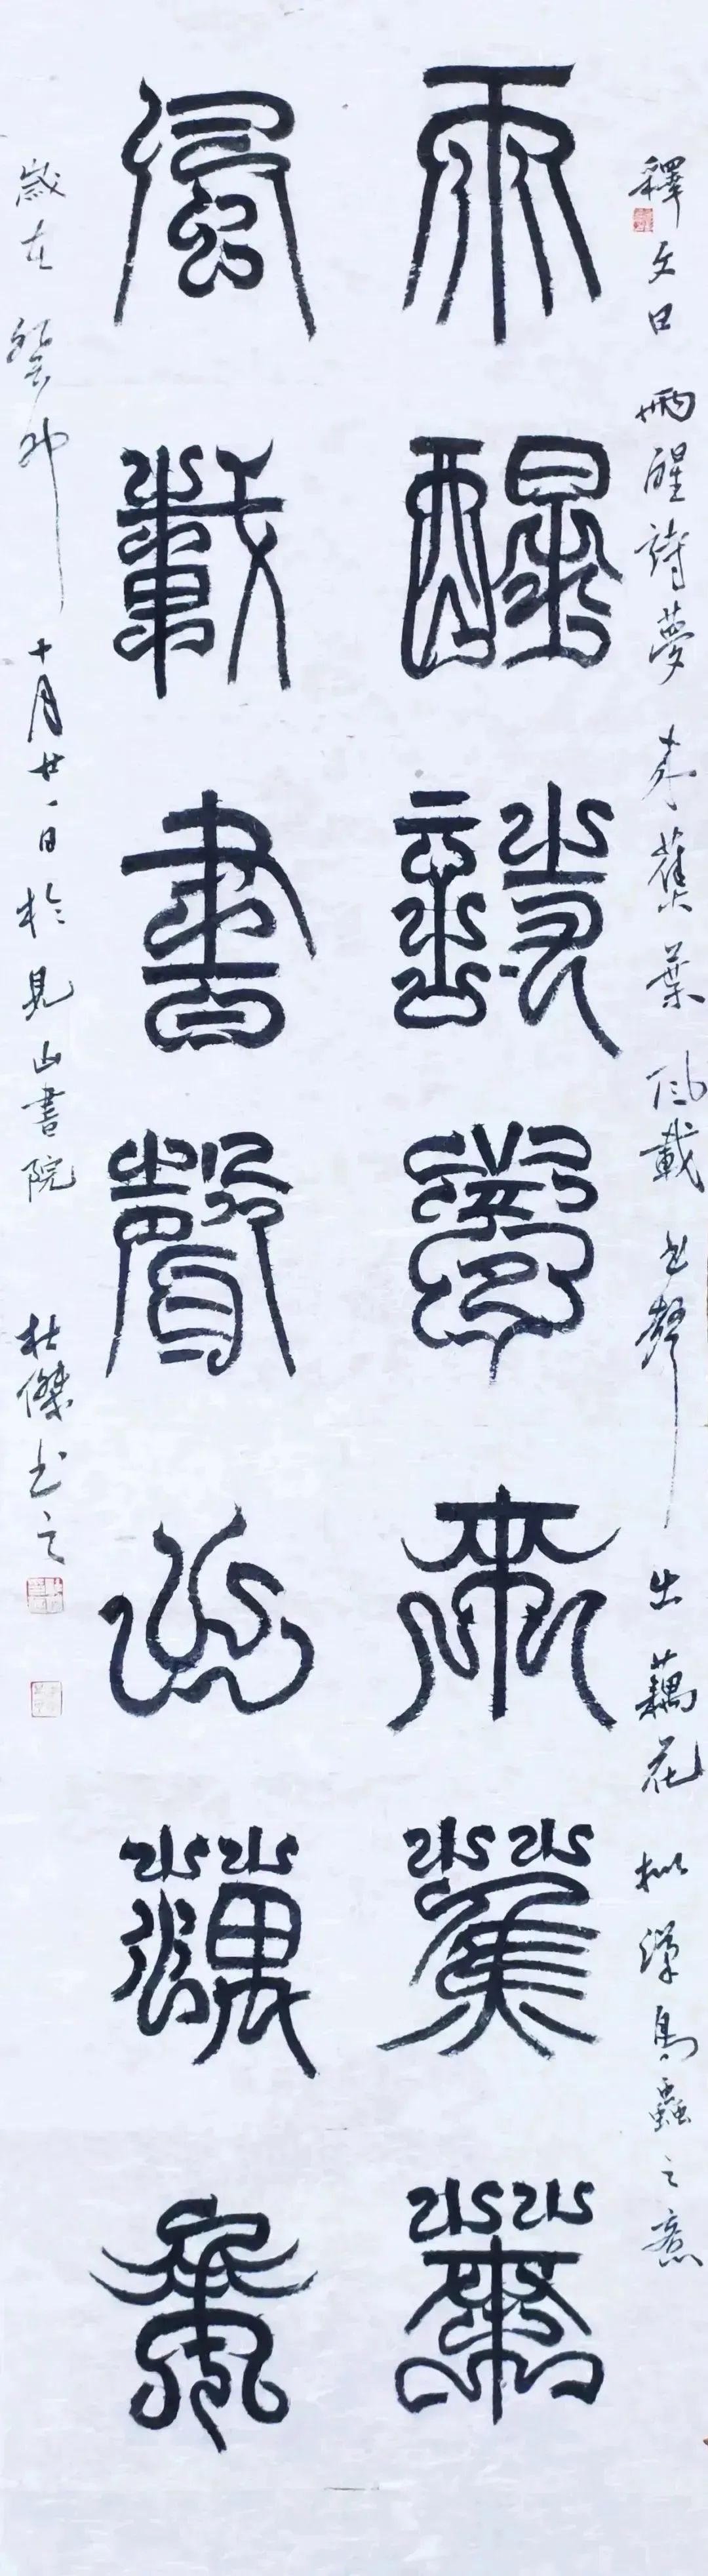 釋文曰雨醒詩夢來蕉葉風載書聲出藕花擬漢鳥蟲之意
雨醒詩夢來蕉葉
風載書聲出藕花
歲在癸卯十月廿一日於見山書院杜傑書之